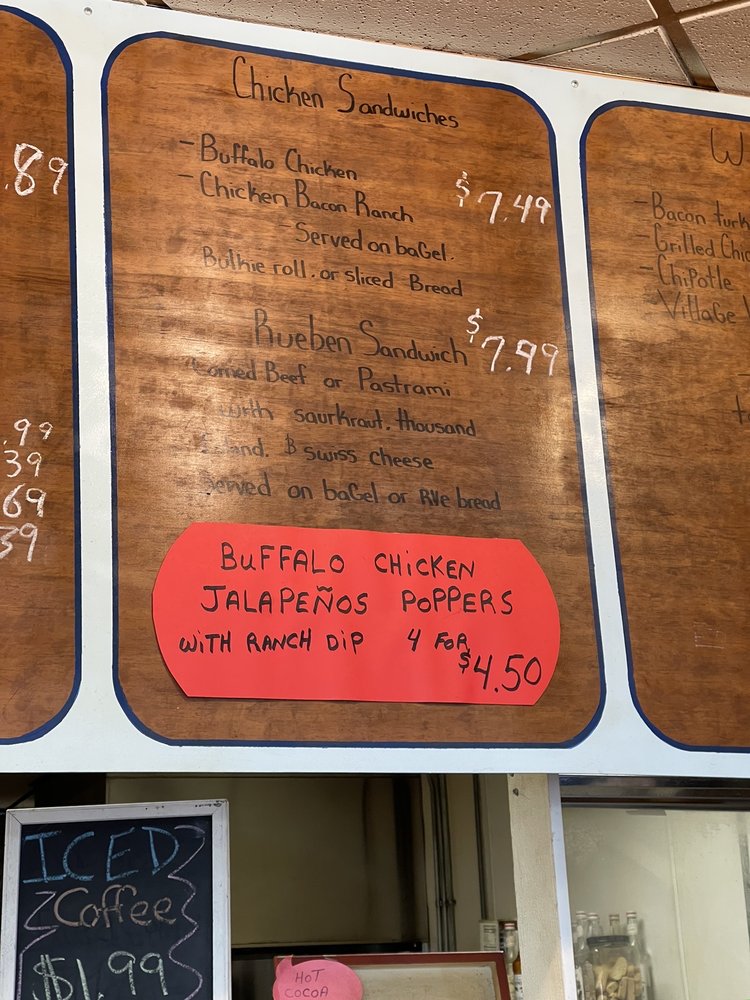 .89
.99
39
.69
.39
Chicken Sandwiches
- Buffalo Chicken
- Chicken Bacon Ranch $7.49
- Served on baGel.
Bulkie roll. or sliced Bread
Rueben Sandwich $7.99
Corned Beef or Pastrami
with saurkraut. thousand
island. & swiss cheese
served on baGel or RYe bread
BUFFALO CHICKEN
JALAPEÑOS POPPERS
WITH RANCH DIP 4 FOR
$4.50
W
- Bacon turk
- Grilled Chic
- Chipotle
- Village
ICED
Coffee
$1.99
HOT
COCOA